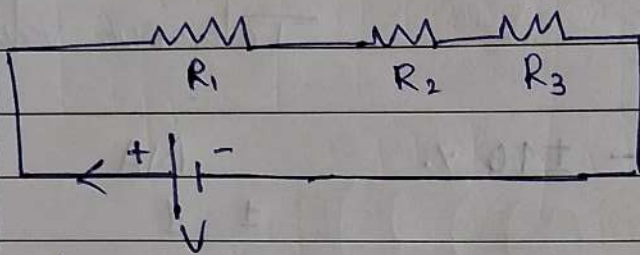 R₁ R₂ R₃
+ -
V